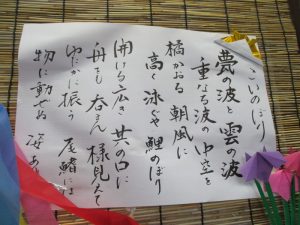 こいのぼり
甍の波と雲の波
重なる波の中空を
橘かおる朝風に
高く泳ぐや鯉のぼり
開ける広き其の口に
舟をも呑まん様見えて
ゆたかに振う尾鰭には
物に動ぜぬ姿あり